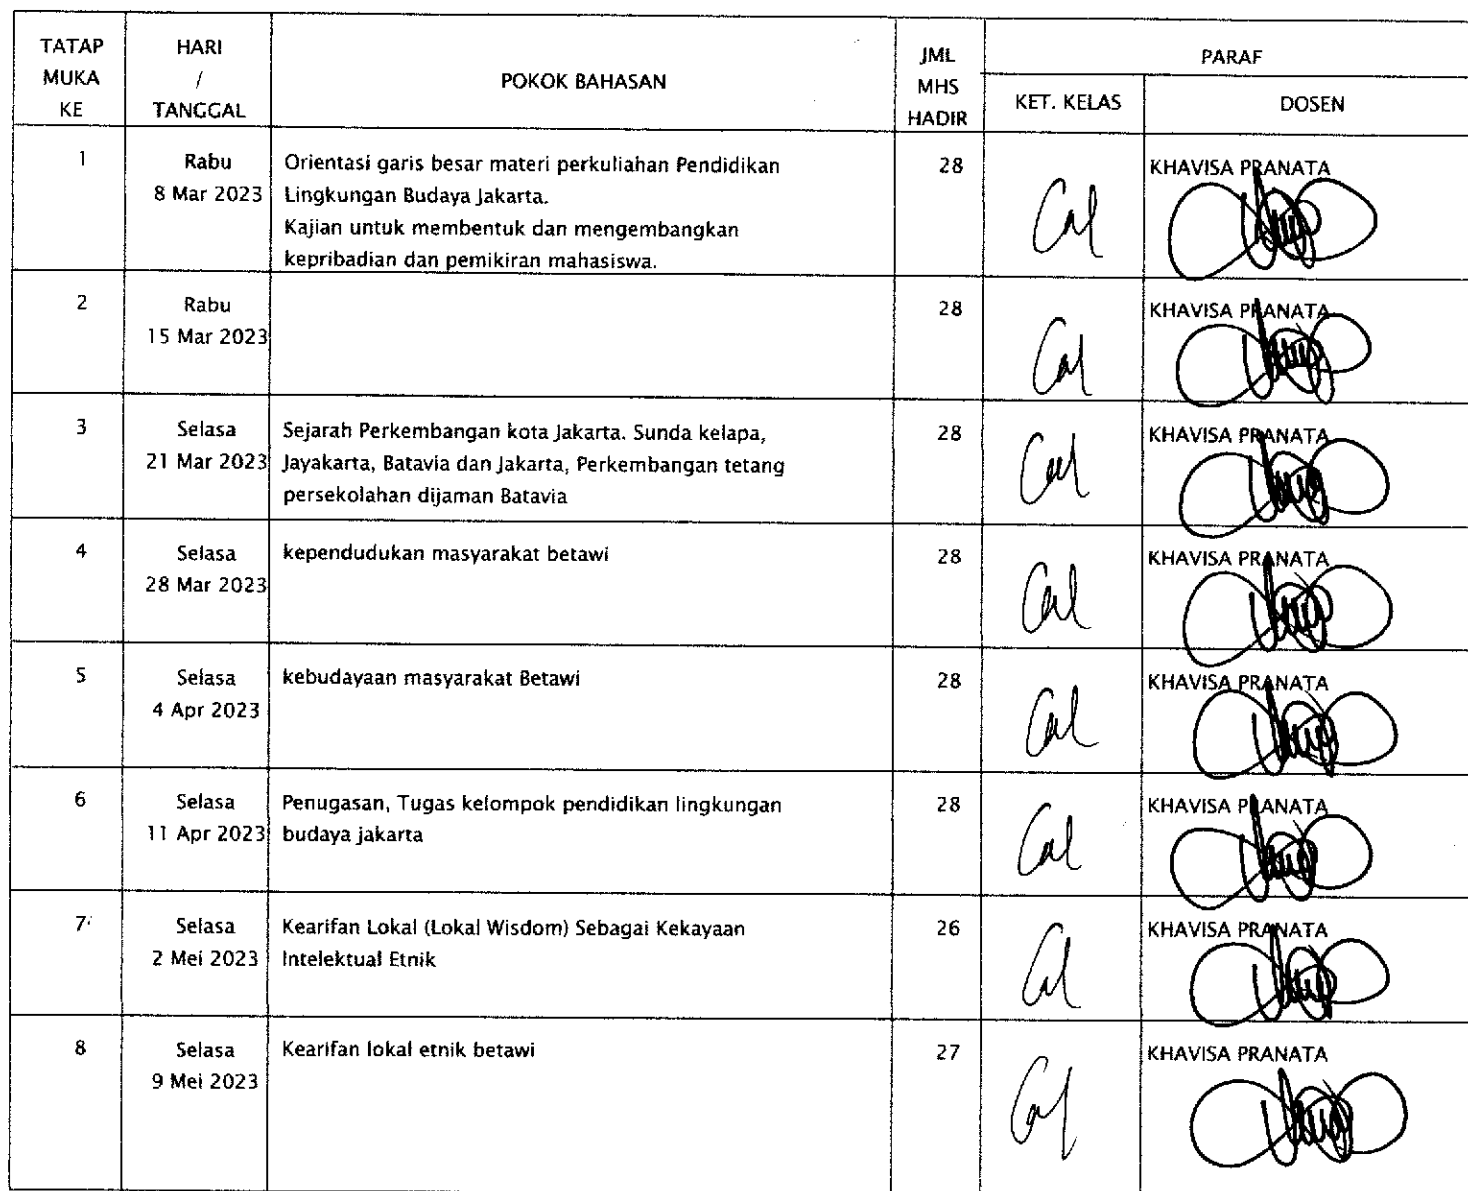 TATAP
MUKA
KE
HARI
/
TANGGAL
POKOK BAHASAN
JML
MHS
HADIR
PARAF
KET. KELAS
DOSEN
1
Rabu
8 Mar 2023
Orientasi garis besar materi perkuliahan Pendidikan
Lingkungan Budaya Jakarta.
Kajian untuk membentuk dan mengembangkan
kepribadian dan pemikiran mahasiswa.
28
KHAVISA PRANATA
2
Rabu
15 Mar 2023
28
KHAVISA PRANATA
3
Selasa
21 Mar 2023
Sejarah Perkembangan kota Jakarta. Sunda kelapa,
Jayakarta, Batavia dan Jakarta, Perkembangan tetang
persekolahan dijaman Batavia
28
KHAVISA PRANATA
4
Selasa
28 Mar 2023
kependudukan masyarakat betawi
28
KHAVISA PRANATA
5
Selasa
4 Apr 2023
kebudayaan masyarakat Betawi
28
KHAVISA PRANATA
6
Selasa
11 Apr 2023
Penugasan, Tugas kelompok pendidikan lingkungan
budaya jakarta
28
KHAVISA PRANATA
7
Selasa
2 Mei 2023
Kearifan Lokal (Lokal Wisdom) Sebagai Kekayaan
Intelektual Etnik
26
KHAVISA PRANATA
8
Selasa
9 Mei 2023
Kearifan lokal etnik betawi
27
KHAVISA PRANATA